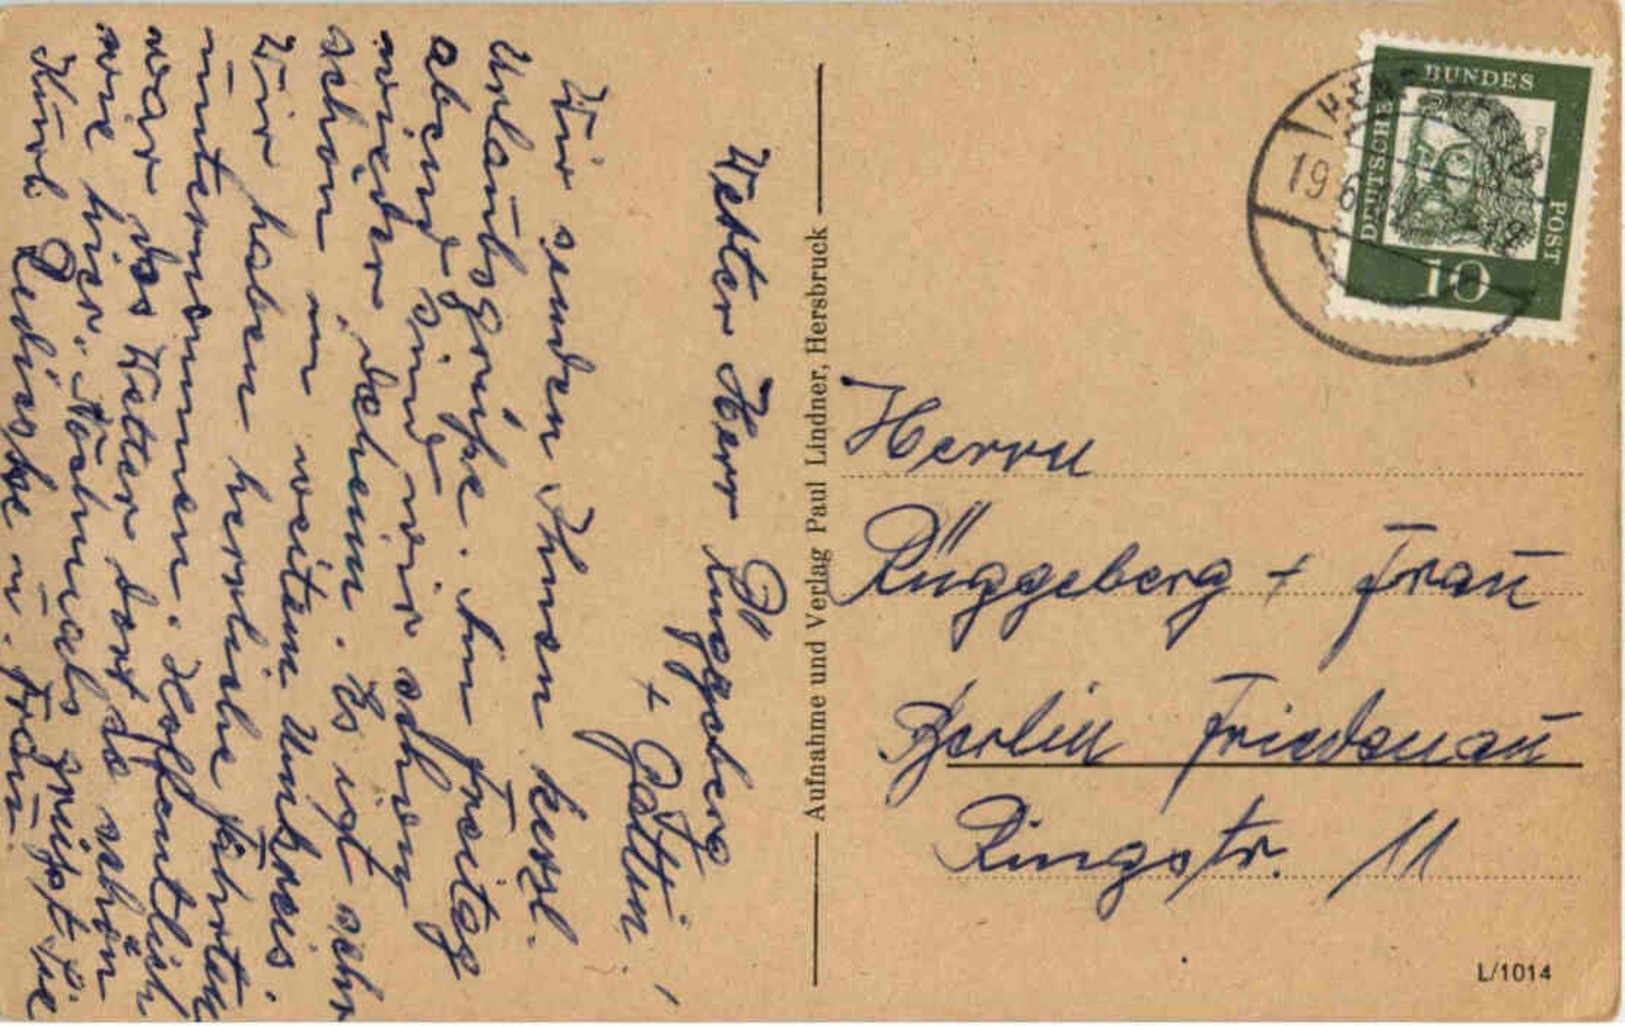 Werter Herr Rüggeberg
+ Gattin!
Wir senden Ihnen herzl.
Urlaubsgrüße. Am Freitag
abend sind wir schon
wieder daheim. Es ist sehr
schön in weitem Umkreis.
Wir haben herrliche Fahrten
unternommen. Hoffentlich
war das Wetter dort so schön
wie hier. Nochmals grüßt Sie
Kurt u. Frau.
Aufnahme und Verlag Paul Lindner, Hersbruck
DEUTSCHE
BUNDES
POST
10
19.6
Herrn
Rüggeberg + Frau
Berlin Friedenau
Ringstr. 11
L/1014